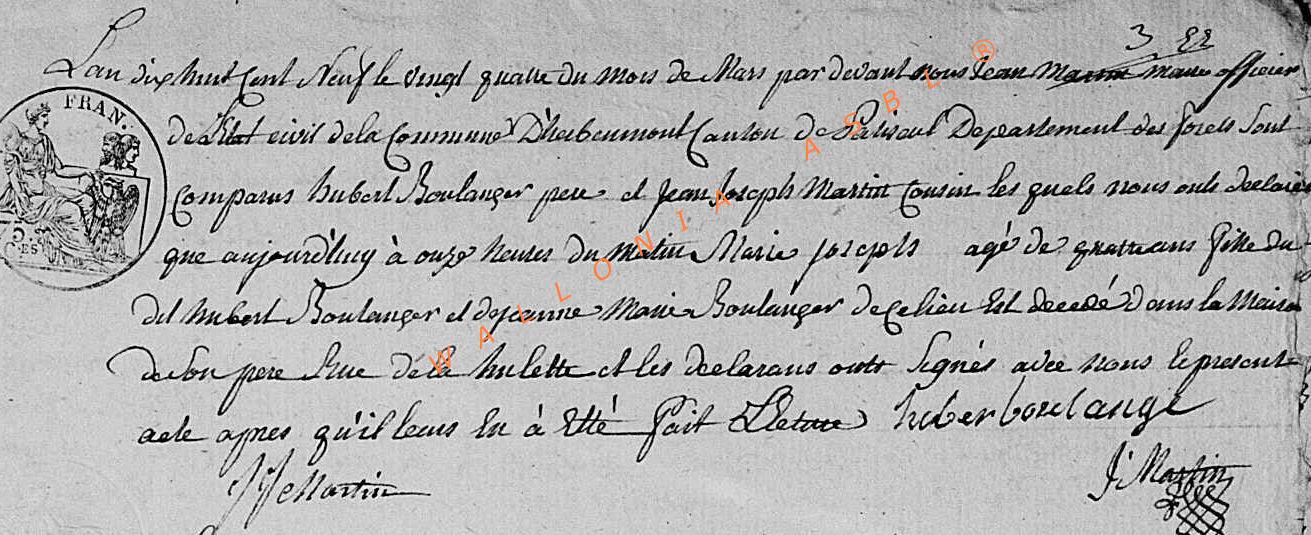 3 22
L'an dix huit Cent Neuf le vingt quatre du mois de Mars par devant nous Jean Martin maire officier
FRAN.
de L'Etat civil de la Commune D'herbeumont Canton de Paliseul Departement des forets Sont
Comparus hubert Boulanger pere et Jean Joseph Martin Cousin les quels nous onts declaré
que aujourd'huy à onze heures du matin Marie Joseph agé de quatre ans fille du
dit hubert Boulanger et de jeanne Marie Boulanger de Ce lieu Est decedé dans la Maison
de son pere Rue de la hulette et les declarans onts Signés avec nous le present
acte apres qu'il leurs En à Etté fait Lleture huberboulange
JJeMartin
J Martin
WALLONIA ASBL ®